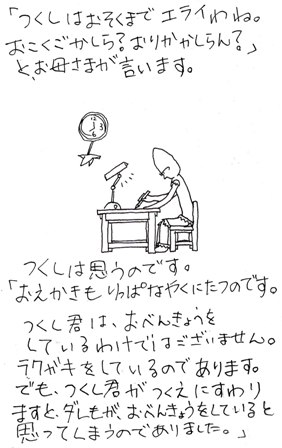 「つくしはおそくまでエライわね。
おこくごかしら？おりかかしらん？」
と、お母さまが言います。
12
3
6
つくしは思うのです。
「おえかきもりっぱなやくにたつのです。
つくし君は、おべんきょうを
しているわけではございません。
ラクガキをしているのであります。
でも、つくし君がつくえにすわり
ますと、ダレもが、おべんきょうをしていると
思ってしまうのでありました。」